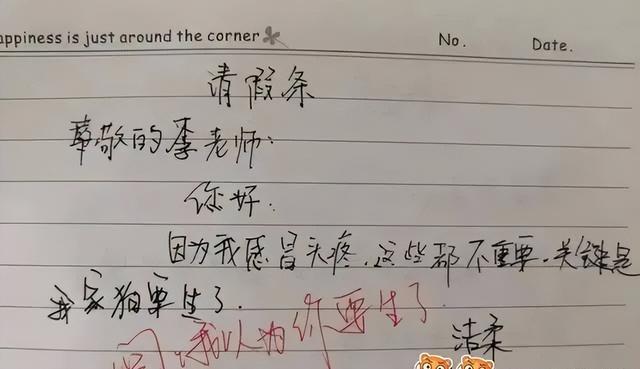 appiness is just around the corner No. Date.
请假条
尊敬的李老师：
你好：
因为我感冒头疼，这些都不重要，关键是
我家狗要生了.
我以为你要生了
洁柔